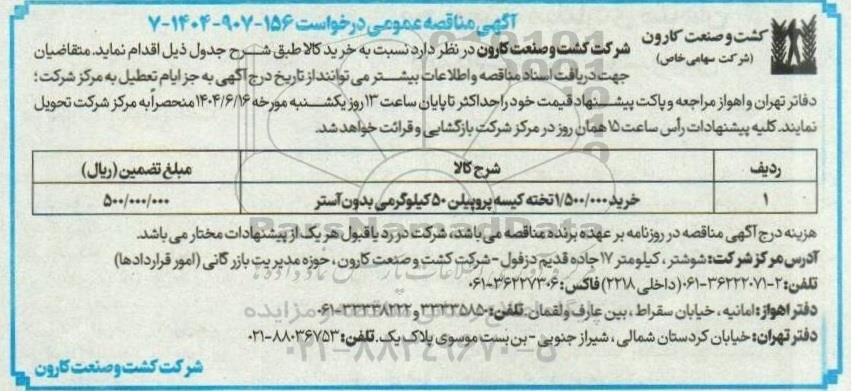 آگهی مناقصه عمومی درخواست ۱۵۶-۹۰۷-۱۴۰۴-۷
کشت و صنعت کارون
(شرکت سهامی خاص)
شرکت کشت و صنعت کارون در نظر دارد نسبت به خرید کالا طبق شرح جدول ذیل اقدام نماید. متقاضیان
جهت دریافت اسناد مناقصه و اطلاعات بیشتر می توانند از تاریخ درج آگهی به جز ایام تعطیل به مرکز شرکت؛
دفاتر تهران و اهواز مراجعه و پاکت پیشنهاد قیمت خود را حداکثر تا پایان ساعت ۱۳ روز یکشنبه مورخه ۱۴۰۴/۶/۱۶ منحصراً به مرکز شرکت تحویل
نمایند. کلیه پیشنهادات رأس ساعت ۱۵ همان روز در مرکز شرکت بازگشایی و قرائت خواهد شد.
ردیف شرح کالا مبلغ تضمین (ریال)
۱ خرید ۱/۵۰۰/۰۰۰ تخته کیسه پروپیلن ۵۰ کیلوگرمی بدون آستر ۵۰۰/۰۰۰/۰۰۰
هزینه درج آگهی مناقصه در روزنامه بر عهده برنده مناقصه می باشد، شرکت در رد یا قبول هر یک از پیشنهادات مختار می باشد.
آدرس مرکز شرکت: شوشتر، کیلومتر ۱۷ جاده قدیم دزفول - شرکت کشت و صنعت کارون، حوزه مدیریت بازرگانی (امور قراردادها)
تلفن: ۲-۳۶۲۲۲۰۷۱-۰۶۱ (داخلی ۲۲۱۸) فاکس: ۳۶۲۲۷۳۰۶-۰۶۱
دفتر اهواز: امانیه، خیابان سقراط، بین عارف و لقمان تلفن: ۳۳۳۳۵۸۵۰ و ۳۳۳۳۸۲۲۲-۰۶۱
دفتر تهران: خیابان کردستان شمالی، شیراز جنوبی - بن بست موسوی پلاک یک. تلفن: ۸۸۰۳۶۷۵۳-۰۲۱
شرکت کشت و صنعت کارون
ParsNamadData
۰۲۱-۸۸۳۴۹۶۷۰-۵